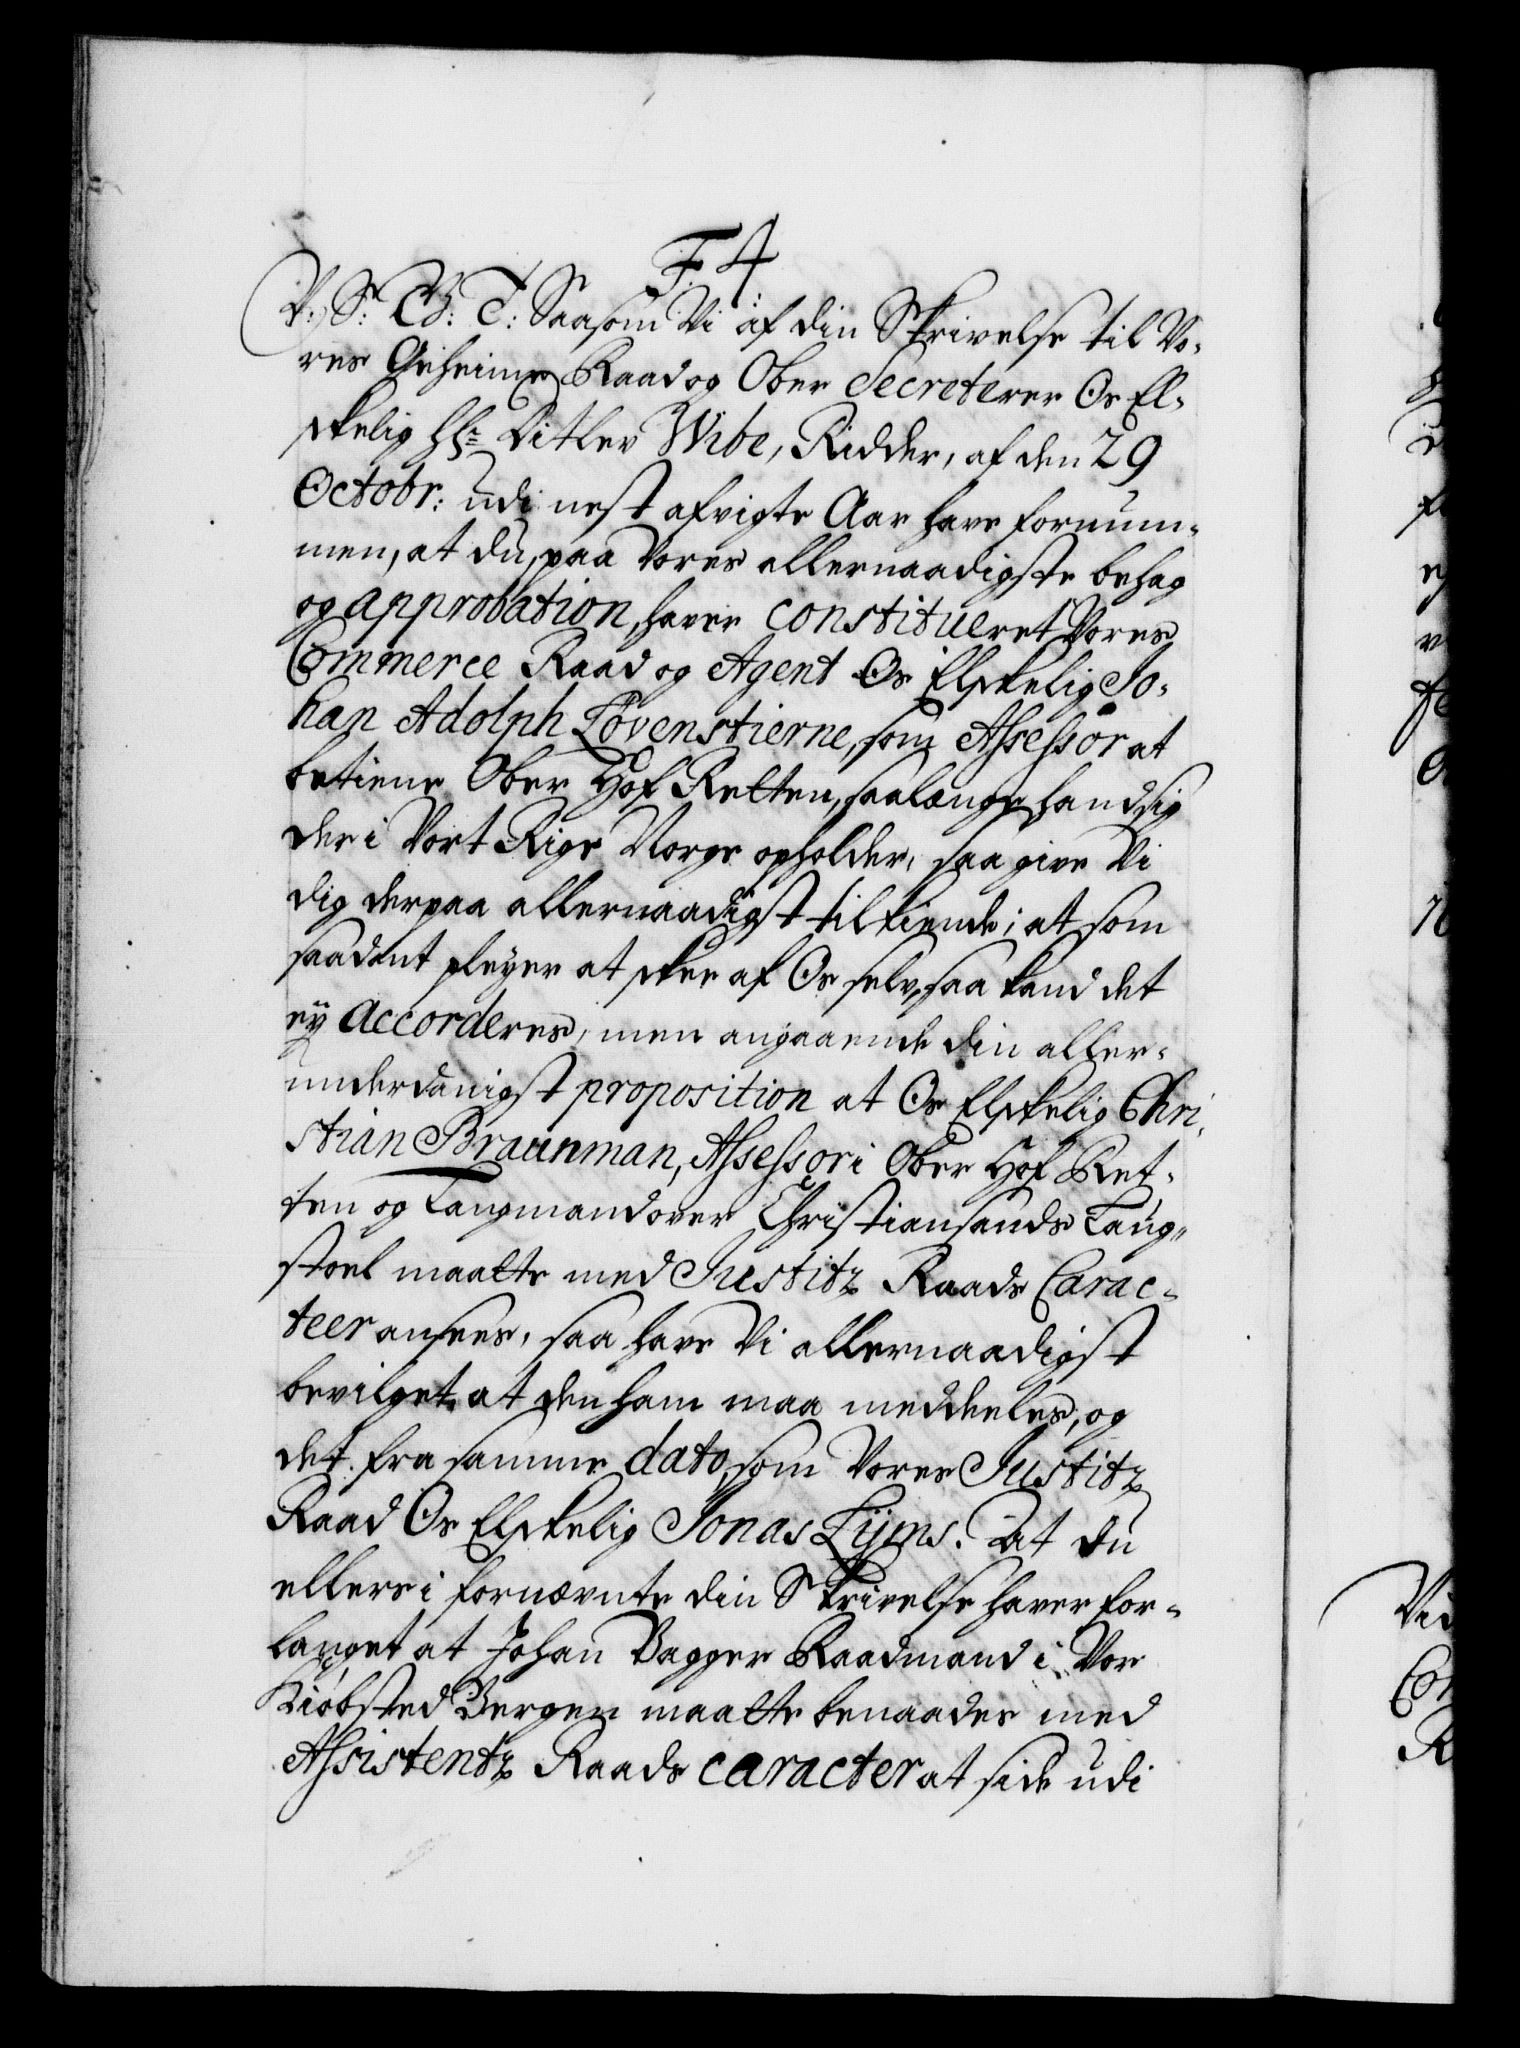 F. 4.
V: S: G: T: Saasom Vi af din Skrivelse til Vo-
res Geheime Raad og Ober Secreterer Os El-
skelig Hr: Ditlev Wibe, Ridder, af den 29
Octobr: udi nest afvigte Aar have fornum-
men, at du, paa Vores allernaadigste behag
og approbation, haver constitueret Vores
Commerce Raad og Agent Os Elskelig Jo-
han Adolph Lövenstierne, som Assessor at
betiene Ober Hof Retten, saalænge hand sig
der i Vort Rige Norge opholder, saa give Vi
dig derpaa allernaadigst tilkiende; at som
saadant pleyer at skee af Os selv, saa kand det
ey accorderes, men angaaende din aller-
underdanigst proposition at Os Elskelig Chri-
stian Braunman, Assessor i Ober Hof Ret-
ten og Laugmand over Christiansands Laug-
stoel maatte med Justitz Raads Carac-
teer ansees, saa have Vi allernaadigst
bevilget, at den ham maa meddeeles, og
det fra samme dato, som Vores Justitz
Raad Os Elskelig Jonas Lijms. At du
ellers i fornævnte din Skrivelse haver for-
langet at Johan Bagger Raadmand i Vor
Kiöbsted Bergen maatte benaades med
Assistentz Raads caracter at side udi